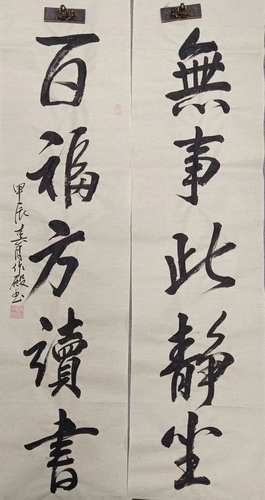 無事此靜坐
百福方讀書
甲辰春月作殿书